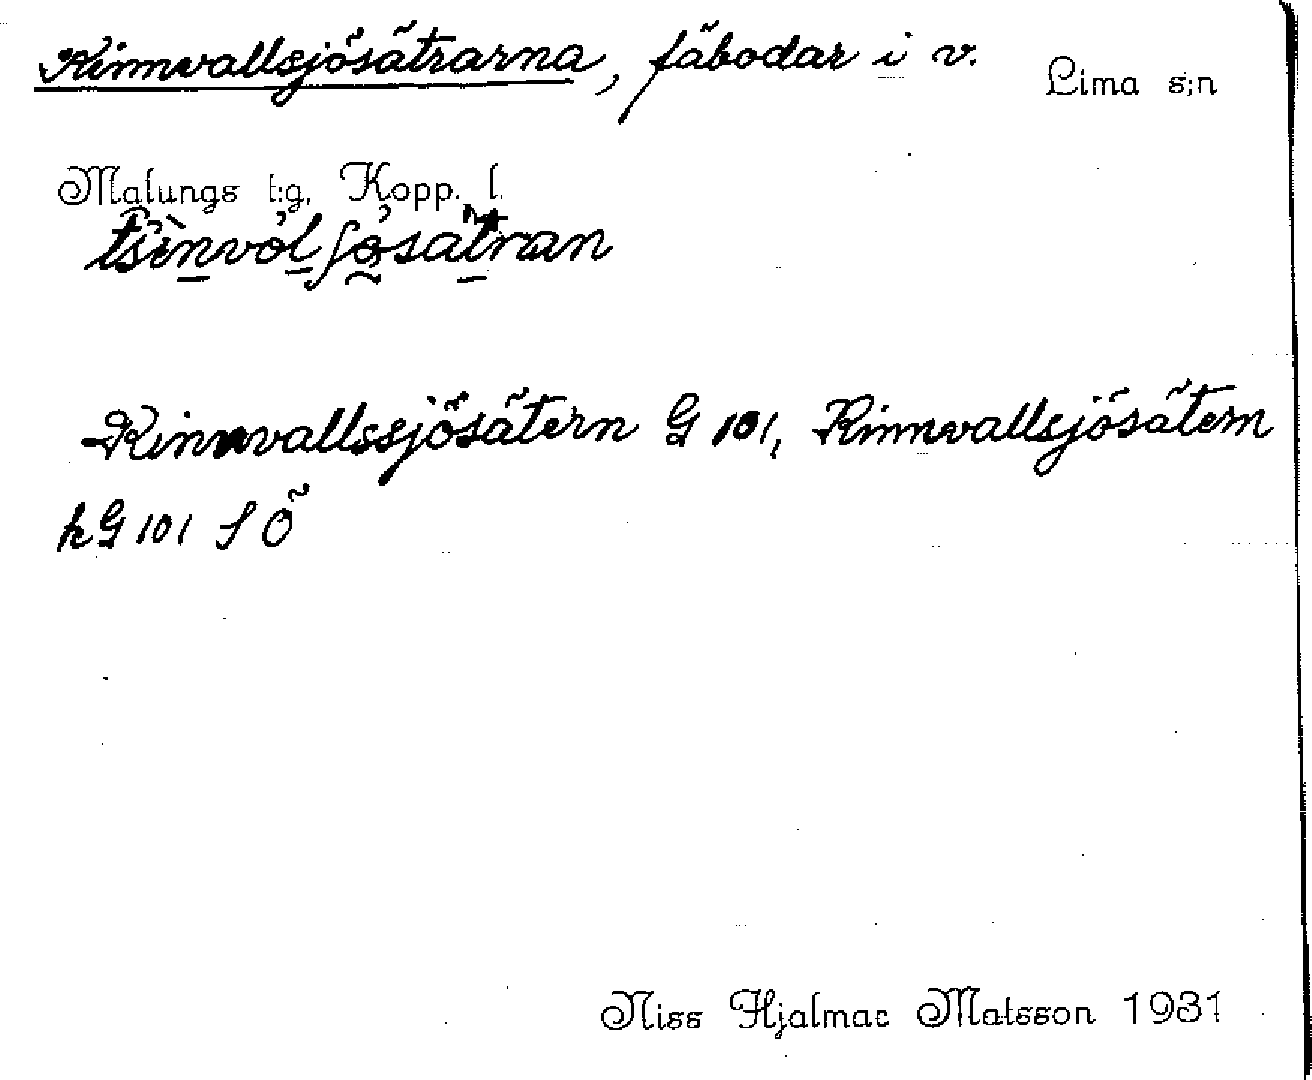 Kinnvallsjösätrarna, fäbodar i v. Lima s:n
Malungs t:g, Kopp. l.
Kinnvallssjösätern G 101, Kinnvallsjösätern
hG 101 SÖ
Niss Hjalmar Matsson 1931